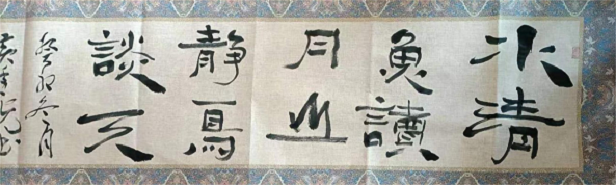 水清
魚讀
月山
静鳥
談天
癸卯冬月